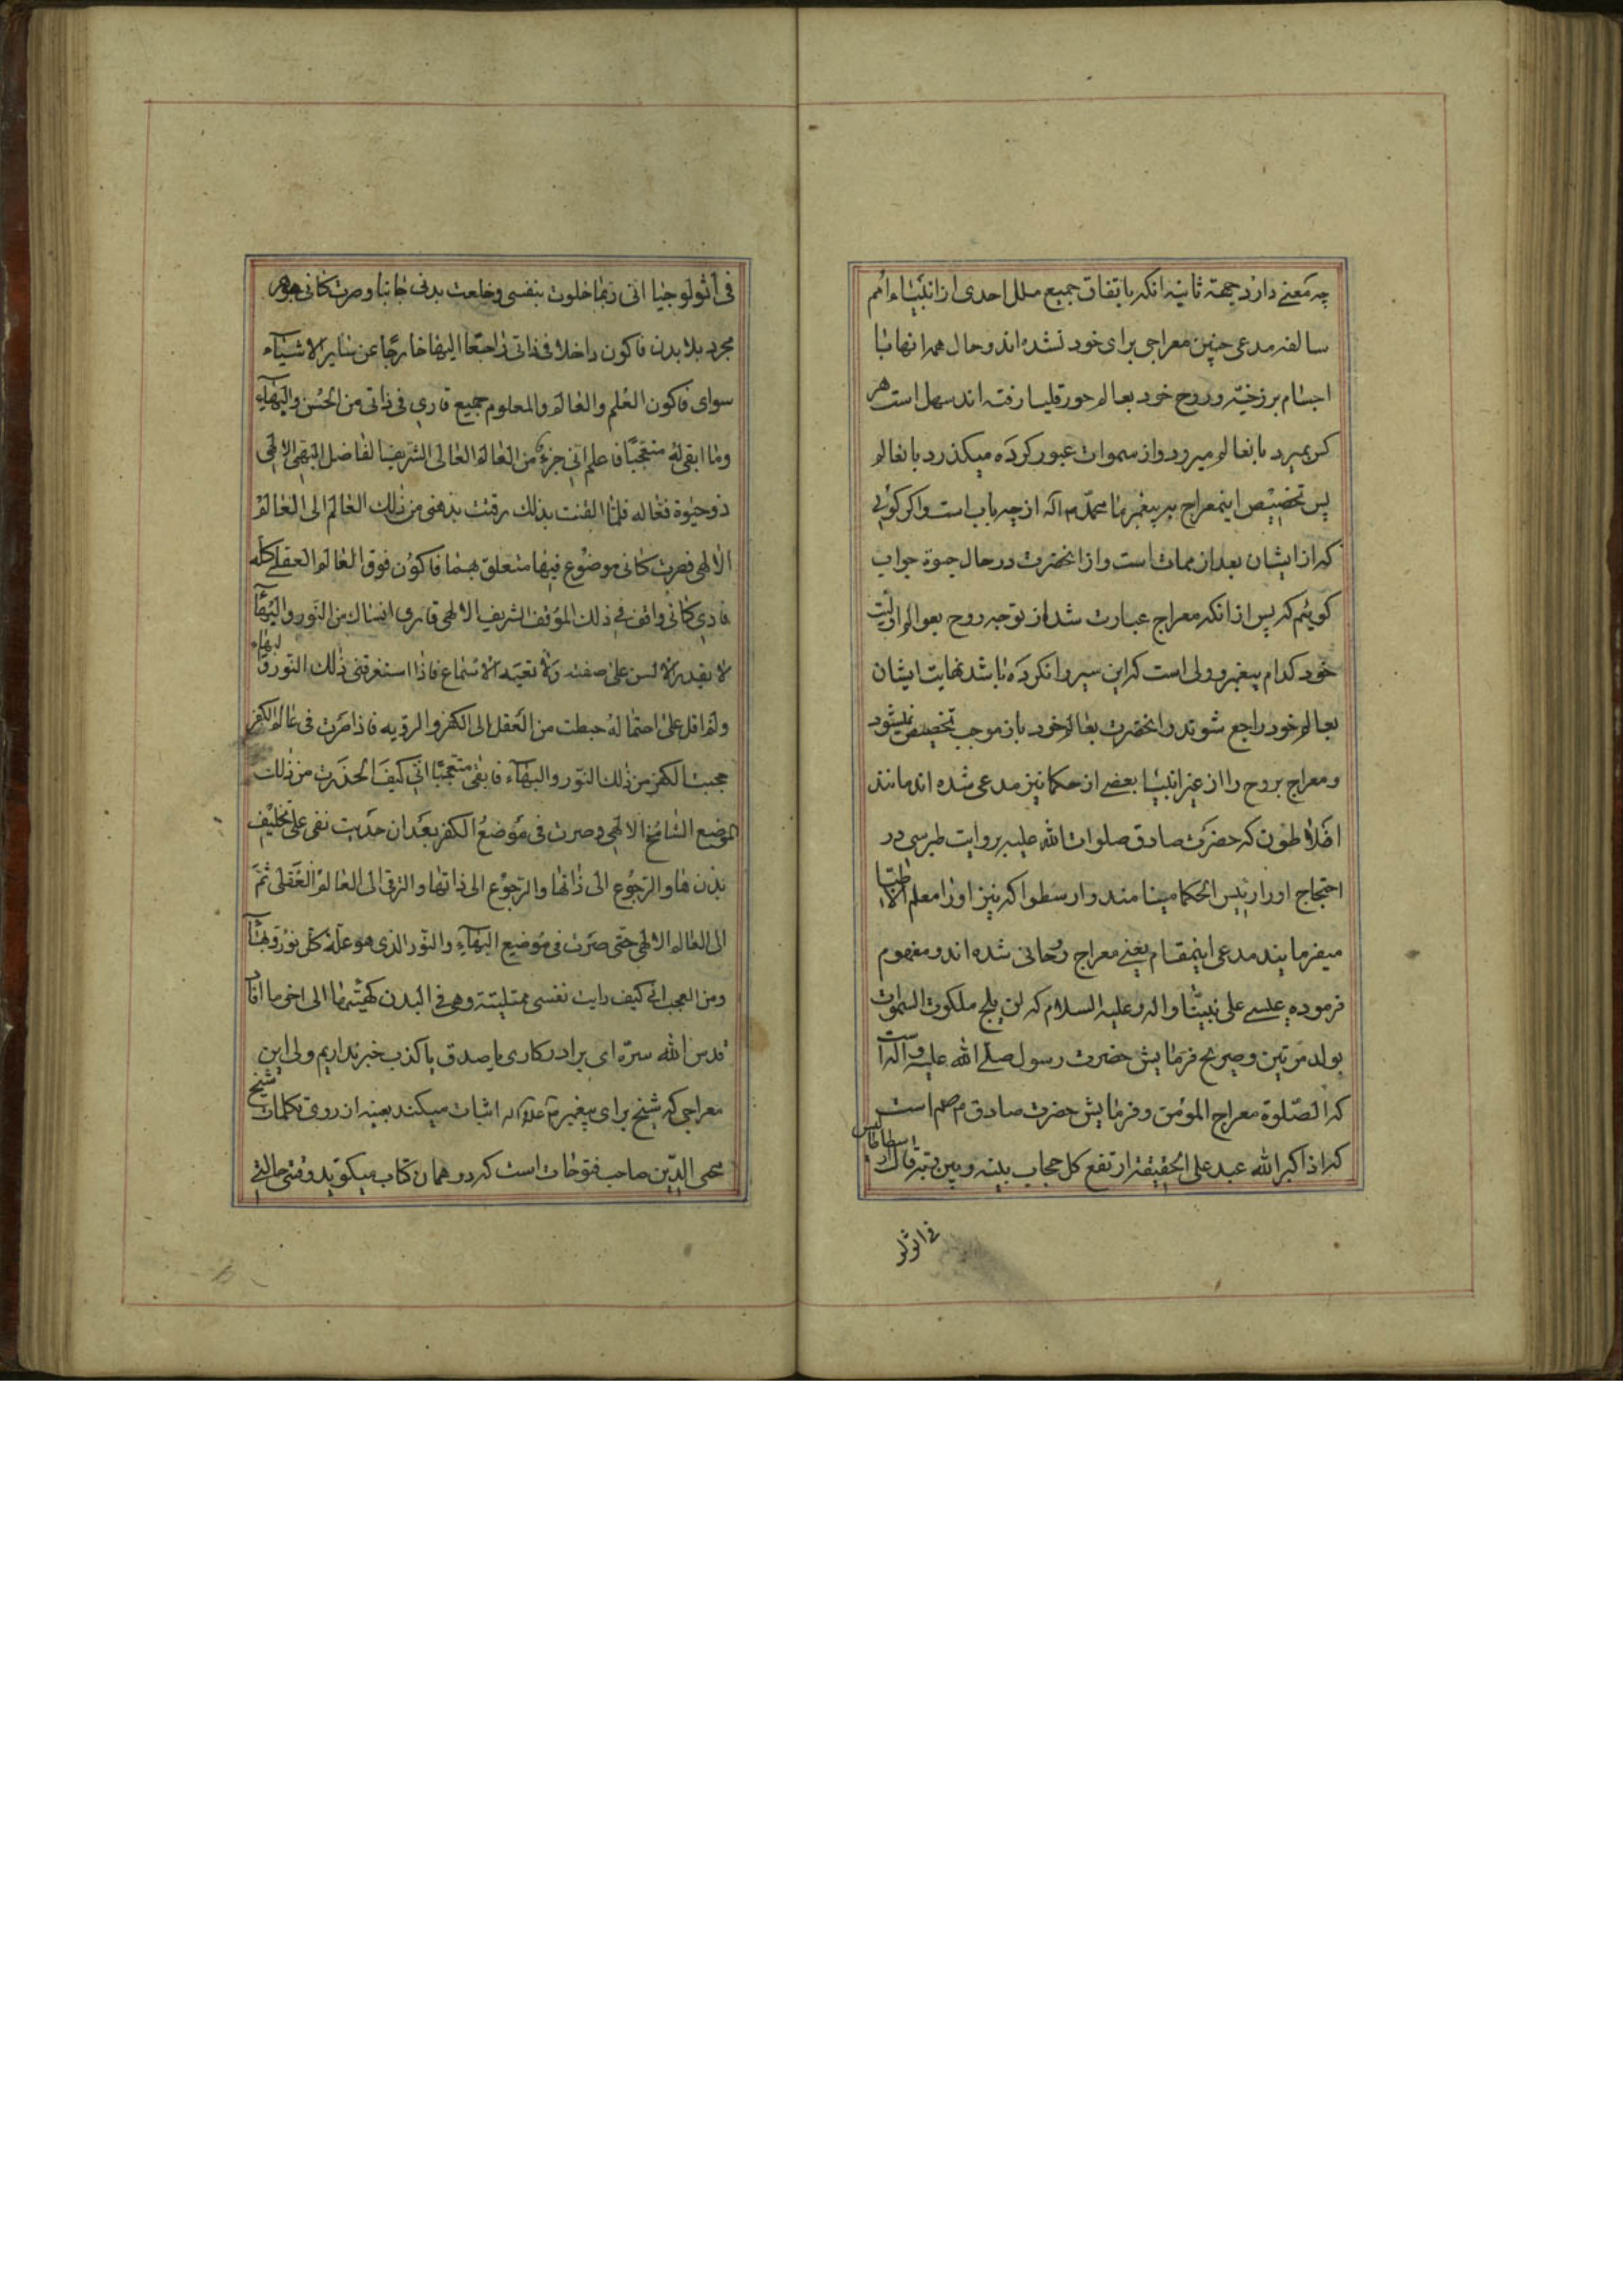 چه معنی دارد جهة ثانیه انکه باتفاق جمیع ملل احدی از انبیاء امم
سالفه مدعی چنین معراجی برای خود نشده اند و حال همه انها با
اجسام برزخیّه و روح خود بعالم هورقلیا رفته اند سهل است هر
که بمیرد بانعالم میرود و از سموات عبور کرده میکذرد بانعالم
پس تخصیص اینمعراج به پیغمبر ما محمّد ص آله از چه باب است و اکر کوئی
که از ایشان بعد از ممات است و از انحضرت در حال حیوة جواب
کوئیم که پس از انکه معراج عبارت شد از توجه روح بعوالم اولیّت
خود کدام پیغمبر و ولی است که این سیر را نکرده باشد نهایت ایشان
بعالم خود راجع شوند و انحضرت بعالم خود باز موجب تخصیص نمیشود
و معراج بروح را از غیر انبیا بعضی از حکما نیز مدعی شده اند مانند
افلاطون که حضرت صادق صلوات الله علیه بروایت طبرسی در
احتجاج او را رئیس الحکما مینامند و ارسطو اکه نیز او را معلم الاطبّا
میفرمایند مدعی اینمقام یعنی معراج روحانی شده اند و مفهوم
فرموده عیسی علی نبیّنا و اله و علیه السلام که لن یلج ملکوت السموات
یولد مرتین و صریح فرمایش حضرت رسول صلی الله علیه و آله است
که الصّلوة معراج المؤمن و فرمایش حضرت صادق م صلم است
که اذا کبر الله عبد علی الحقیقة ارتفع کل حجاب بینه و بین ربّه قال ارسطاطالیس
فی اثولو
فی اثولوجیا انی ربما خلوت بنفسی و خلعت بدنی جانبا و صرت کانی جوهر
مجرد بلا بدن فاکون داخلا فی ذاتی راجعا الیها خارجا عن سایر الاشیاء
سوای فاکون العلم و العالم و المعلوم جمیع فاری فی ذاتی من الحسن و البهاء
و ما ابقی له متعجبًا فاعلم انی جزء من العالم العالی الشریف الفاضل البهی الالهی
ذو حیوة فعاله فلما القنت بذلک رقت بذهنی من ذلک العالم الی العالم
الالهی فصرت کانی موضوع فیها متعلق بهما فاکون فوق العالم العقلی کله
فاری کانی واقف فی ذلک الموقف الشریف الالهی فاری هناک من النور و البهاء
لا یقدر الالسن علی صفته و لا تعیه الاسماع فاذا استغرقنی ذلک النور و البهاء
و لم اقل علی احتماله هبطت من العقل الی الکفر و الرویه فاذا صرت فی عالم الکفر
حجبت الکفر من ذلک النور و البهاء فابقی متعجبًا انی کیف انحدرت من ذلک
الموضع الشامخ الالهی و صرت فی موضع الکفر بعد ان حدیت نفی علی تخلیف
بدن ها و الرجوع الی ذاتها و الرجوع الی ذاتها و الترقی الی العالم العقلی ثم
الی العالم الالهی حتی صرت فی موضع البهاء و النور الذی هو علة کل نور و بهاء
و من العجب انی کیف رایت نفسی ممتلیته و هی فی البدن کهیئتها الی اخر ما افاد
قدس الله سره ای برادر کاری با صدق یا کذب خبر نداریم ولی این
معراجی که شیخ برای پیغمبر ص علیه و آله اثبات میکند بعینه از روی کلمات شیخ
محی الدّین صاحب فتوحات است که در همان کتاب میکوید وقتی حالتی